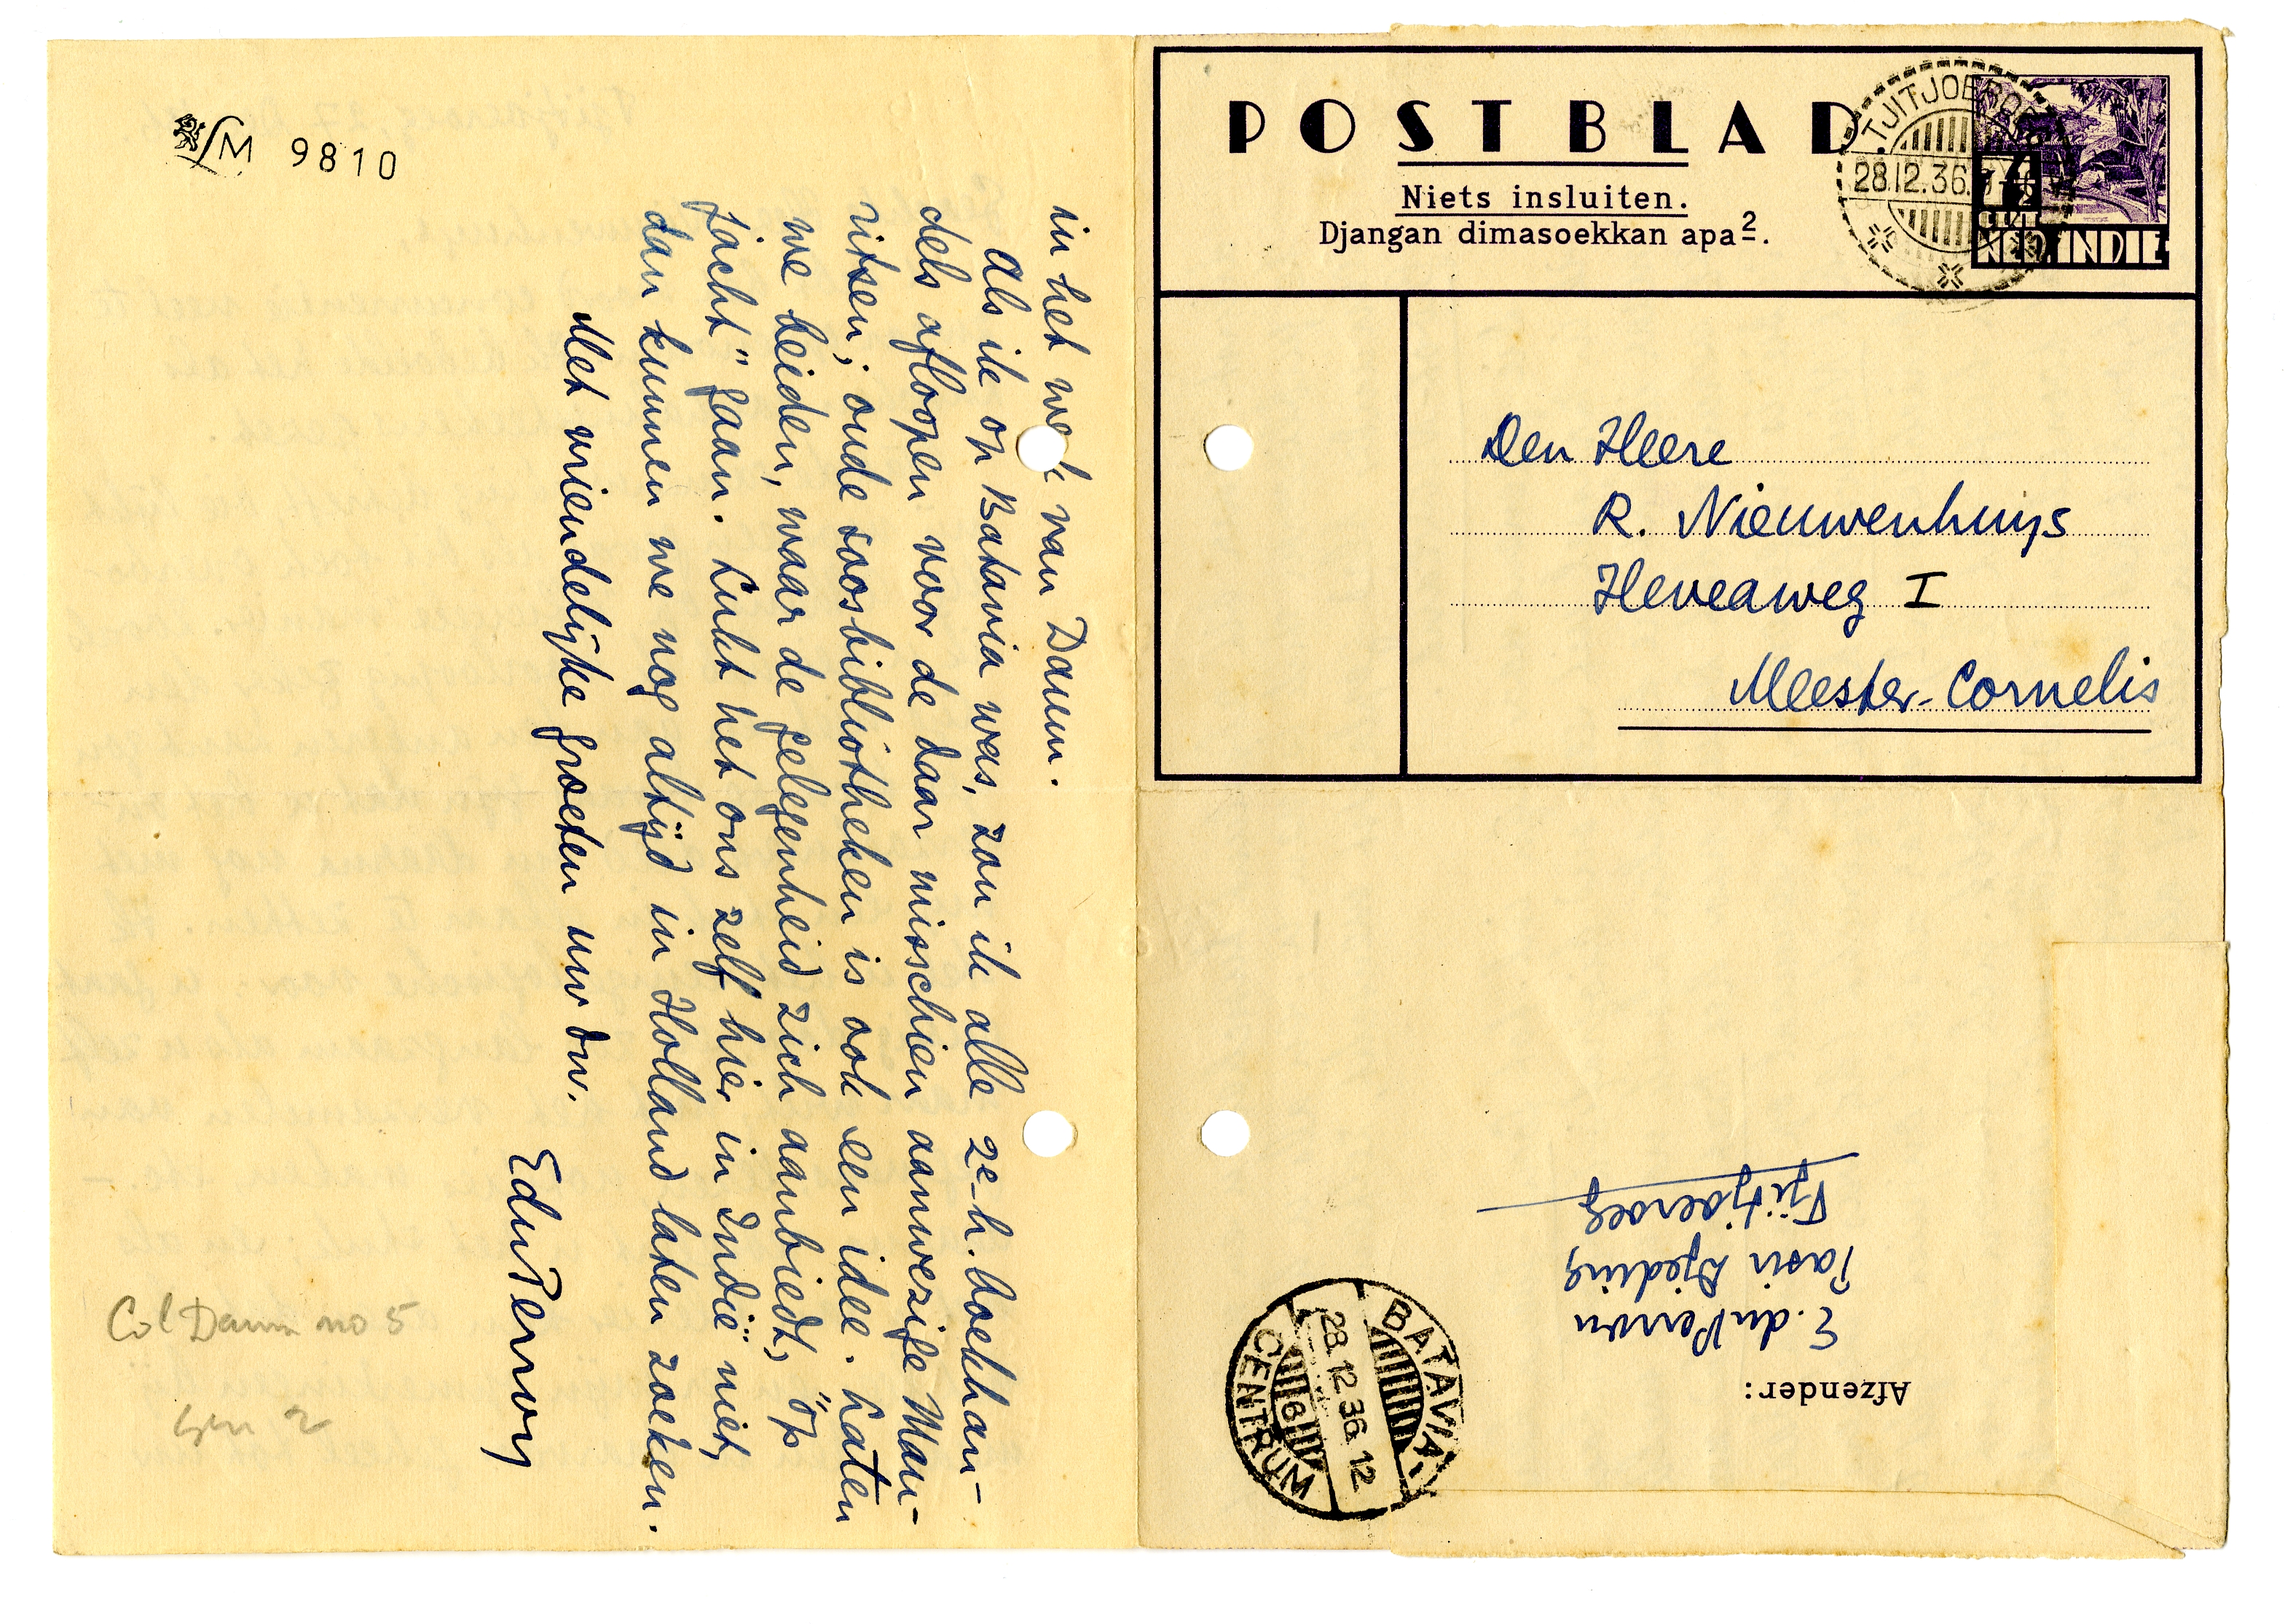 POSTBLAD
Niets insluiten.
Djangan dimasoekkan apa².
TJITJOEROEG
28.12.36.
NED. INDIË
Den Heere
R. Nieuwenhuys
Heveaweg I
Meester-Cornelis
Afzender:
E. du Perron
Pasir Djeding
Tjitjoeroeg
BATAVIA-
28.12.36.12
6
CENTRUM
LM 9810
in het werk van Daum.
Als ik op Batavia was, zou ik alle 2e-h. boekhan-
dels afloopen voor de daar misschien aanwezige Mau-
ritsen; oude soosbibliotheken is ook een idee. Laten
we beiden, waar de gelegenheid zich aanbiedt, "op
jacht" gaan. Lukt het ons zelf hier in Indië niet,
dan kunnen we nog altijd in Holland laten zoeken.
Met vriendelijke groeten uw dw.
EduPerron
Col Daum no 5